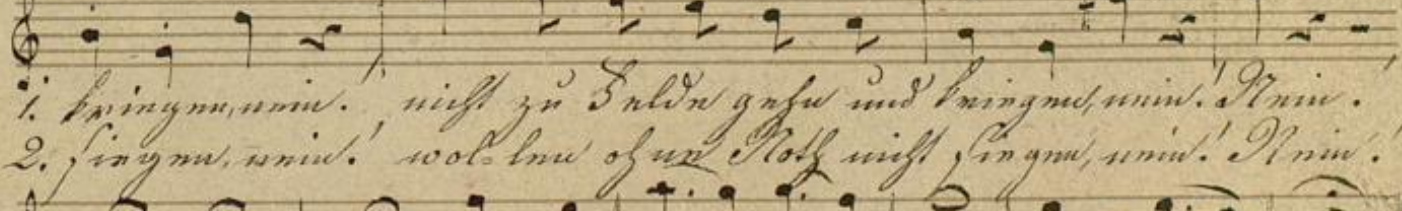 1. kriegen, nein! nicht zu Felde gehn und kriegen, nein! Nein!
2. siegen, nein! wol-len ohne Noth nicht siegen, nein! Nein!